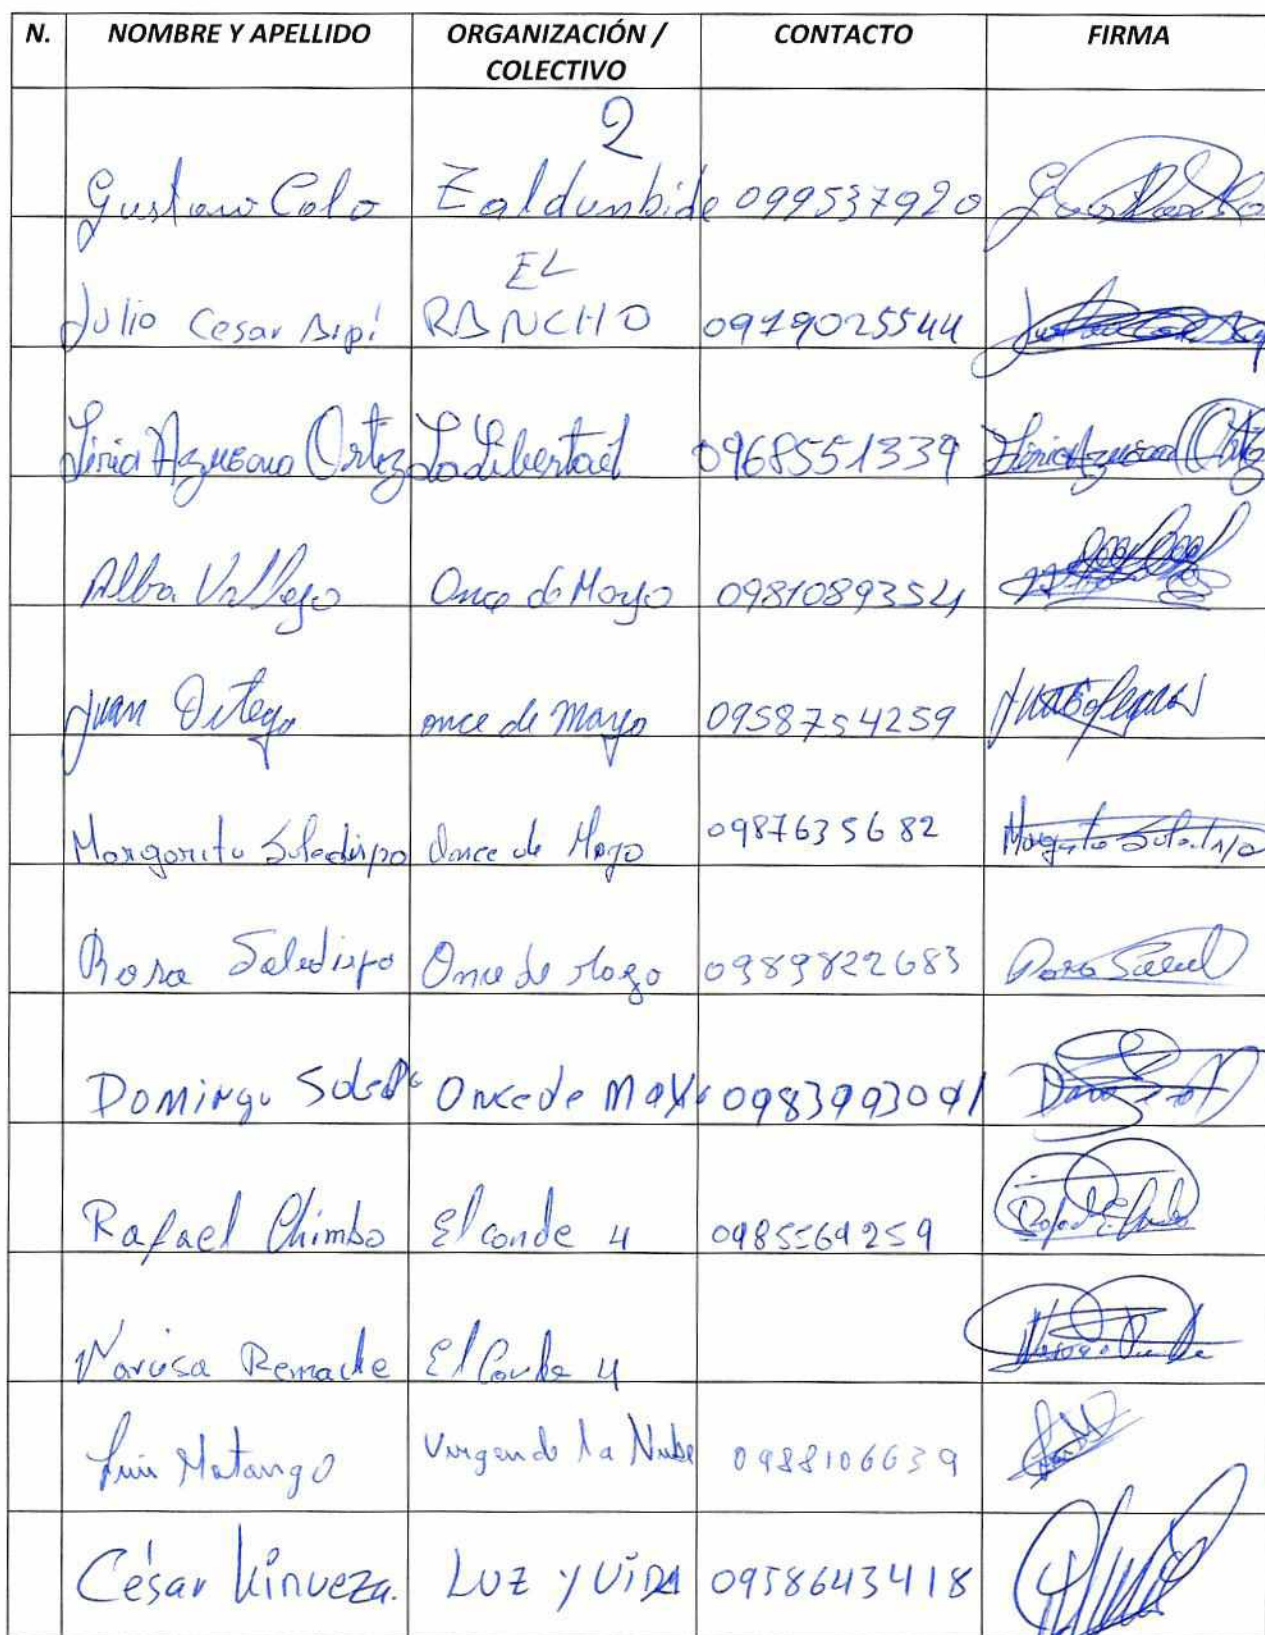 N. NOMBRE Y APELLIDO ORGANIZACIÓN / COLECTIVO CONTACTO FIRMA
2
Gustavo Colo Zaldumbide 099537920
EL
Julio Cesar Sipi RANCHO 0979025544
Liria Azucena Ortiz La Libertad 0968551339 Liria Azucena Ortiz
Alba Vallejo Once de Mayo 0981089354
Juan Ortega once de mayo 0958754259
Margarita Soledispa Once de Mayo 0987635682 Margarita Soledispa
Rosa Soledispa Once de Mayo 0989822683 Rosa
Domingo Once de Mayo 0983993091
Rafael Chimbo El conde 4 0985569259
Narcisa Remache El Conde 4
Luis Matango Virgen de la Nube 0988106639
César Kinveza. LUZ Y VIDA 0958643418